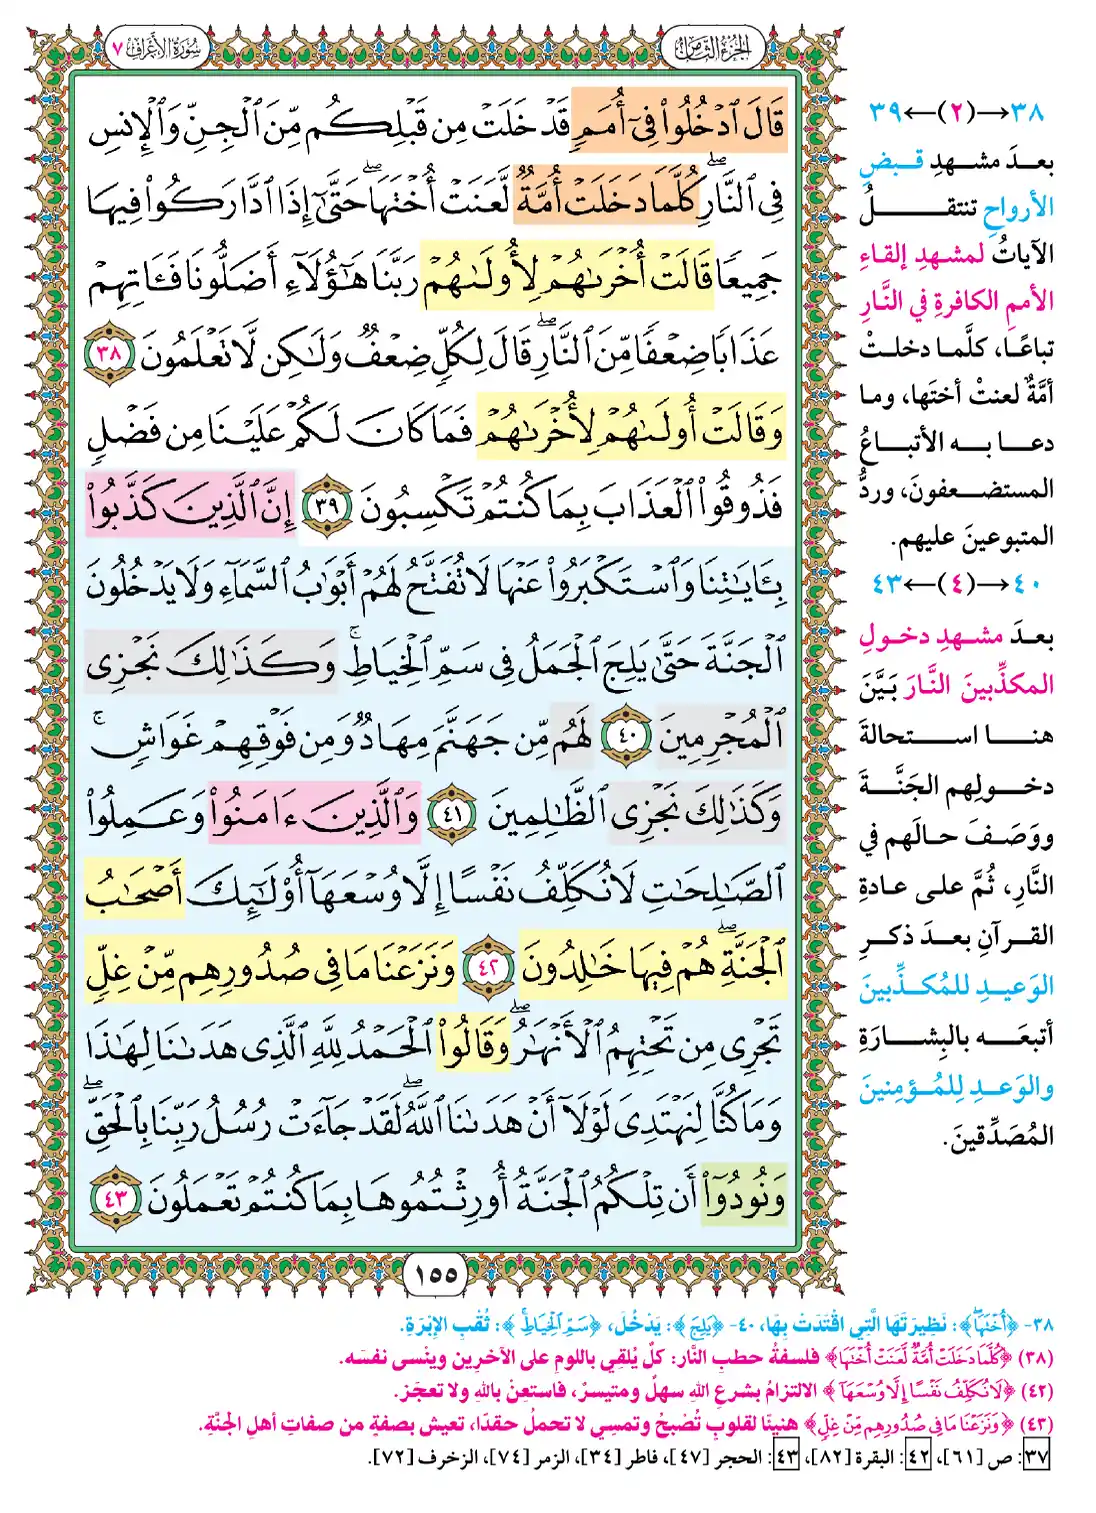 الجزء الثامن
سورة الأعراف ٧
قَالَ ٱدۡخُلُواْ فِيٓ أُمَمٖ قَدۡ خَلَتۡ مِن قَبۡلِكُم مِّنَ ٱلۡجِنِّ وَٱلۡإِنسِ
فِي ٱلنَّارِۖ كُلَّمَا دَخَلَتۡ أُمَّةٞ لَّعَنَتۡ أُخۡتَهَاۖ حَتَّىٰٓ إِذَا ٱدَّارَكُواْ فِيهَا
جَمِيعٗا قَالَتۡ أُخۡرَىٰهُمۡ لِأُولَىٰهُمۡ رَبَّنَا هَٰٓؤُلَآءِ أَضَلُّونَا فَـَٔاتِهِمۡ
عَذَابٗا ضِعۡفٗا مِّنَ ٱلنَّارِۖ قَالَ لِكُلّٖ ضِعۡفٞ وَلَٰكِن لَّا تَعۡلَمُونَ ٣٨
وَقَالَتۡ أُولَىٰهُمۡ لِأُخۡرَىٰهُمۡ فَمَا كَانَ لَكُمۡ عَلَيۡنَا مِن فَضۡلٖ
فَذُوقُواْ ٱلۡعَذَابَ بِمَا كُنتُمۡ تَكۡسِبُونَ ٣٩ إِنَّ ٱلَّذِينَ كَذَّبُواْ
بِـَٔايَٰتِنَا وَٱسۡتَكۡبَرُواْ عَنۡهَا لَا تُفَتَّحُ لَهُمۡ أَبۡوَٰبُ ٱلسَّمَآءِ وَلَا يَدۡخُلُونَ
ٱلۡجَنَّةَ حَتَّىٰ يَلِجَ ٱلۡجَمَلُ فِي سَمِّ ٱلۡخِيَاطِۚ وَكَذَٰلِكَ نَجۡزِي
ٱلۡمُجۡرِمِينَ ٤٠ لَهُم مِّن جَهَنَّمَ مِهَادٞ وَمِن فَوۡقِهِمۡ غَوَاشٖۚ
وَكَذَٰلِكَ نَجۡزِي ٱلظَّٰلِمِينَ ٤١ وَٱلَّذِينَ ءَامَنُواْ وَعَمِلُواْ
ٱلصَّٰلِحَٰتِ لَا نُكَلِّفُ نَفۡسًا إِلَّا وُسۡعَهَآ أُوْلَٰٓئِكَ أَصۡحَٰبُ
ٱلۡجَنَّةِۖ هُمۡ فِيهَا خَٰلِدُونَ ٤٢ وَنَزَعۡنَا مَا فِي صُدُورِهِم مِّنۡ غِلّٖ
تَجۡرِي مِن تَحۡتِهِمُ ٱلۡأَنۡهَٰرُۖ وَقَالُواْ ٱلۡحَمۡدُ لِلَّهِ ٱلَّذِي هَدَىٰنَا لِهَٰذَا
وَمَا كُنَّا لِنَهۡتَدِيَ لَوۡلَآ أَنۡ هَدَىٰنَا ٱللَّهُۖ لَقَدۡ جَآءَتۡ رُسُلُ رَبِّنَا بِٱلۡحَقِّۖ
وَنُودُوٓاْ أَن تِلۡكُمُ ٱلۡجَنَّةُ أُورِثۡتُمُوهَا بِمَا كُنتُمۡ تَعۡمَلُونَ ٤٣
١٥٥
٣٨→(٢)←٣٩
بعدَ مشهدِ قبضِ
الأرواحِ تنتقلُ
الآياتُ لمشهدِ إلقاءِ
الأممِ الكافرةِ في النَّارِ
تباعًا، كلَّما دخلتْ
أمَّةٌ لعنتْ أختَها، وما
دعا به الأتباعُ
المستضعفونَ، وردُّ
المتبوعينَ عليهم.
٤٠→(٤)←٤٣
بعدَ مشهدِ دخولِ
المكذِّبينَ النَّارَ بَيَّنَ
هنا استحالةَ
دخولِهم الجَنَّةَ
ووَصَفَ حالَهم في
النَّارِ، ثُمَّ على عادةِ
القرآنِ بعدَ ذكرِ
الوَعيدِ للمُكذِّبينَ
أتبعَه بالبِشارَةِ
والوَعدِ لِلمُؤمنينَ
المُصَدِّقينَ.
٣٨- ﴿أُخْتَهَا﴾: نَظِيرَتَهَا الَّتِي اقْتَدَتْ بِهَا، ٤٠- ﴿يَلِجَ﴾: يَدْخُلَ، ﴿سَمِّ الْخِيَاطِ﴾: ثُقْبِ الإِبْرَةِ.
(٣٨) ﴿كُلَّمَا دَخَلَتْ أُمَّةٌ لَّعَنَتْ أُخْتَهَا﴾ فلسفةُ حطبِ النَّار: كلٌ يُلقِي باللومِ على الآخرِين وينْسى نفسَه.
(٤٢) ﴿لَا نُكَلِّفُ نَفْسًا إِلَّا وُسْعَهَا﴾ الالتزامُ بشرعِ اللهِ سهلٌ ومتيسرٌ، فاستعنْ باللهِ ولا تعجَز.
(٤٣) ﴿وَنَزَعْنَا مَا فِي صُدُورِهِم مِّنْ غِلٍّ﴾ هنيئًا لقلوبٍ تُصْبحُ وتمسِي لا تحملُ حقدًا، تعيش بصفةٍ من صفاتِ أهلِ الجنَّة.
٣٧: ص [٦١]، ٤٢: البقرة [٨٢]، ٤٣: الحجر [٤٧]، فاطر [٣٤]، الزمر [٧٤]، الزخرف [٧٢].